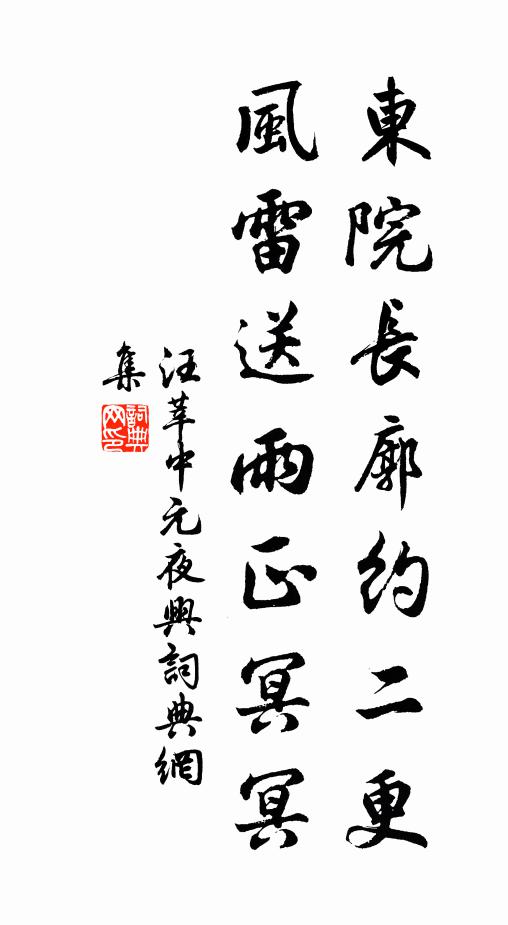 東院長廓約二更
風雷送雨正冥冥
汪莘中元夜興詞典網
集
詞典网印